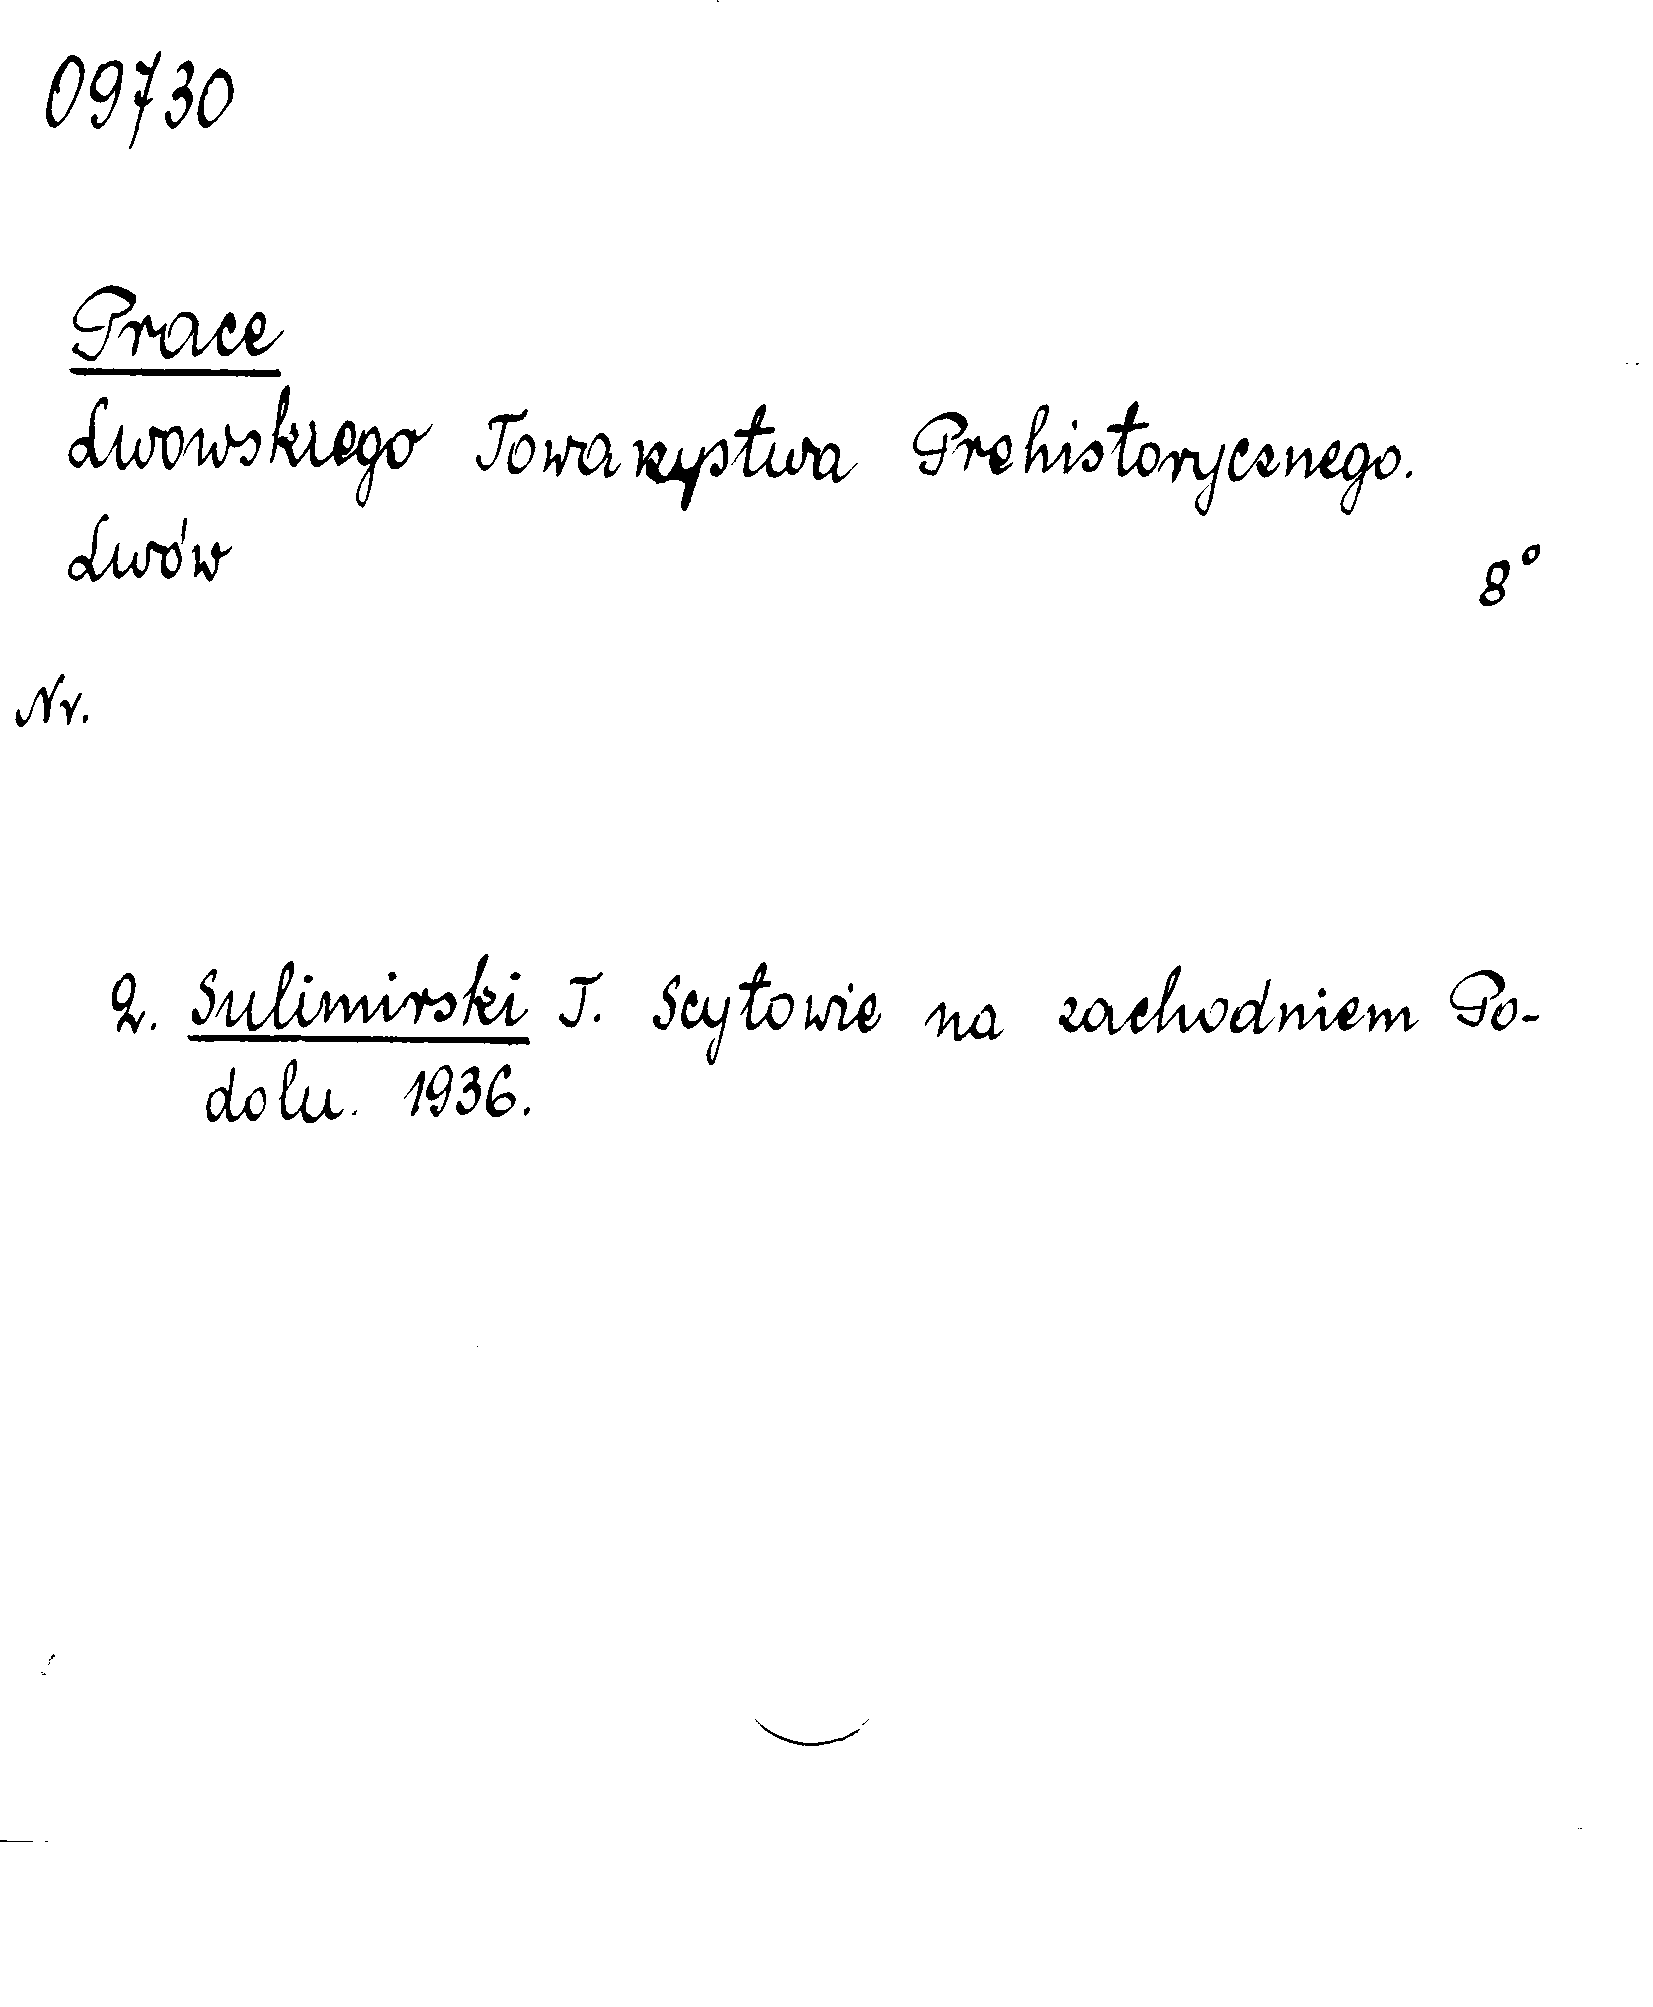 09730
Prace
Lwowskiego Towarzystwa Prehistorycznego.
Lwów
8°
Nr.
2. Sulimirski T. Scytowie na zachodniem Po-
dolu. 1936.